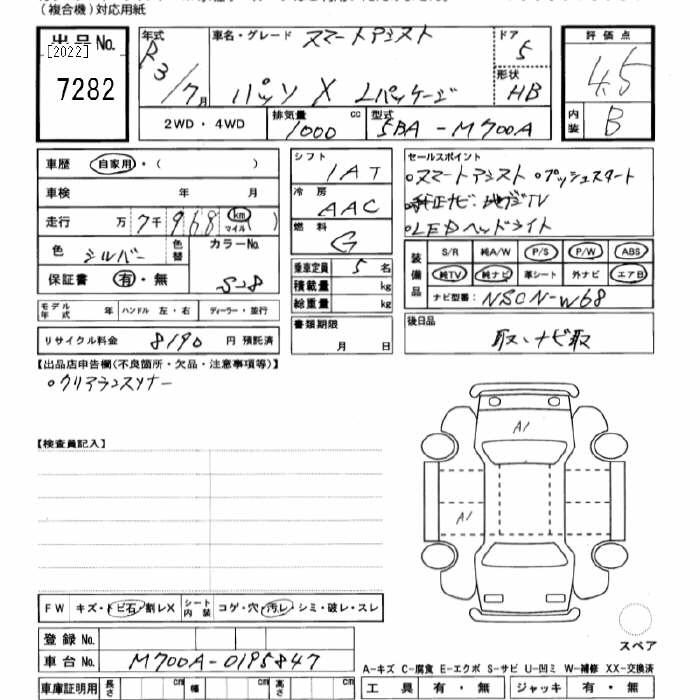 (複合機)対応用紙
出品No. [2022] 7282
年式 R3/7月
車名・グレード スマートアシスト パッソ X Lパッケージ
ドア 5
形状 HB
評価点 4.5
内装 B
2WD・4WD
排気量 1000 cc
型式 5BA-M700A
車歴 自家用・( )
車検 年 月
走行 万 7千 968 km マイル ( )
色 シルバー 色替 カラーNo. S28
保証書 有・無
モデル年式 年 ハンドル 左・右 ディーラー・並行
リサイクル料金 8190 円 預託済
シフト IAT
冷房 AAC
燃料 G
乗車定員 5 名
積載量 kg
総重量 kg
書類期限 月 日
セールスポイント
○スマートアシスト ○プッシュスタート
○純正ナビ・地デジTV
○LEDヘッドライト
装備品 S/R 純A/W P/S P/W ABS
純TV 純ナビ 革シート 外ナビ エアB
ナビ型番: NSCN-W68
後日品 取、ナビ取
【出品店申告欄(不良箇所・欠品・注意事項等)】
○クリアランスソナー
【検査員記入】
A1
A1
スペア
FW キズ・トビ石・割レX シート内装 コゲ・穴・汚レ・シミ・破レ・スレ
登録No.
車台No. M700A-0195847
A-キズ C-腐食 E-エクボ S-サビ U-凹ミ W-補修 XX-交換済
車庫証明用 長さ cm 幅 cm 高さ cm
工具 有・無 ジャッキ 有・無